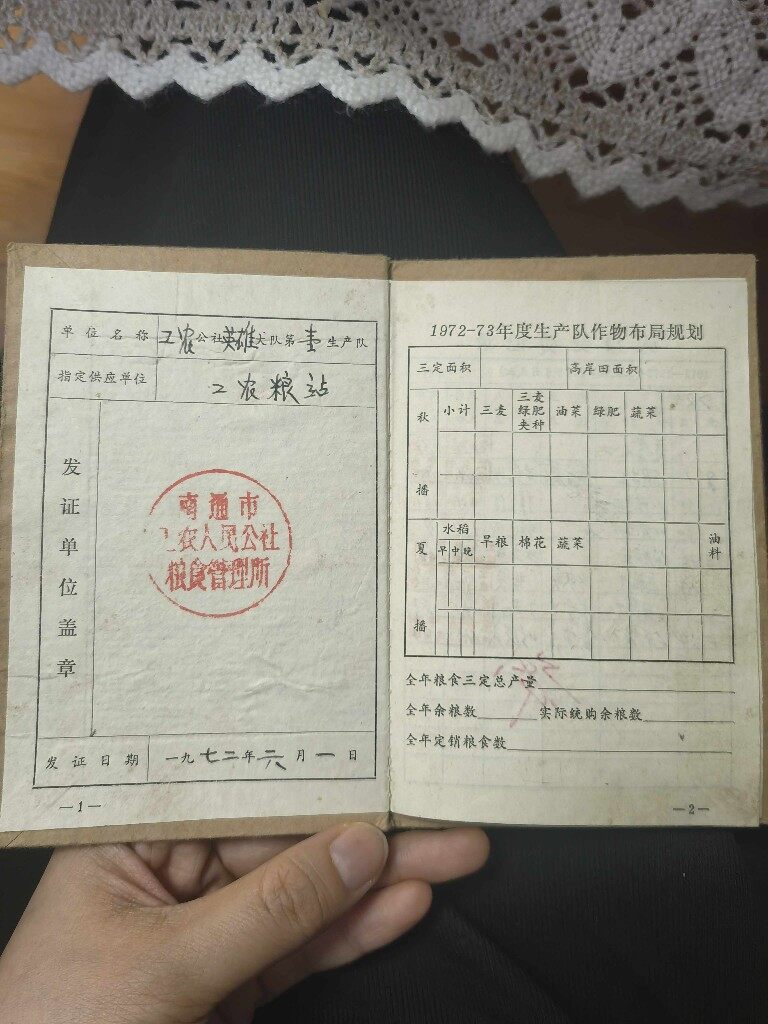 单位名称 工农公社英雄大队第壹生产队
指定供应单位 工农粮站
发证单位盖章
南通市
工农人民公社
粮食管理所
发证日期 一九七二年六月一日
—1—
1972-73年度生产队作物布局规划
三定面积 高岸田面积
秋播 小计 三麦 三麦绿肥夹种 油菜 绿肥 蔬菜
夏播 水稻 早中晚 旱粮 棉花 蔬菜 油料
全年粮食三定总产量
全年余粮数 实际统购余粮数
全年定销粮食数
—2—